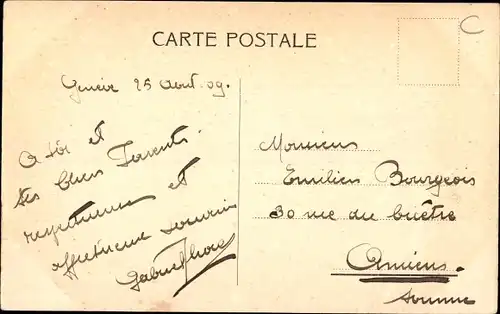 CARTE POSTALE
C
Genève 25 Août 09.
A toi et
tes chers Parents
respectueux et
affectueux souvenir
Monsieur
Emilien Bourgeois
30 rue du
Amiens.
Somme